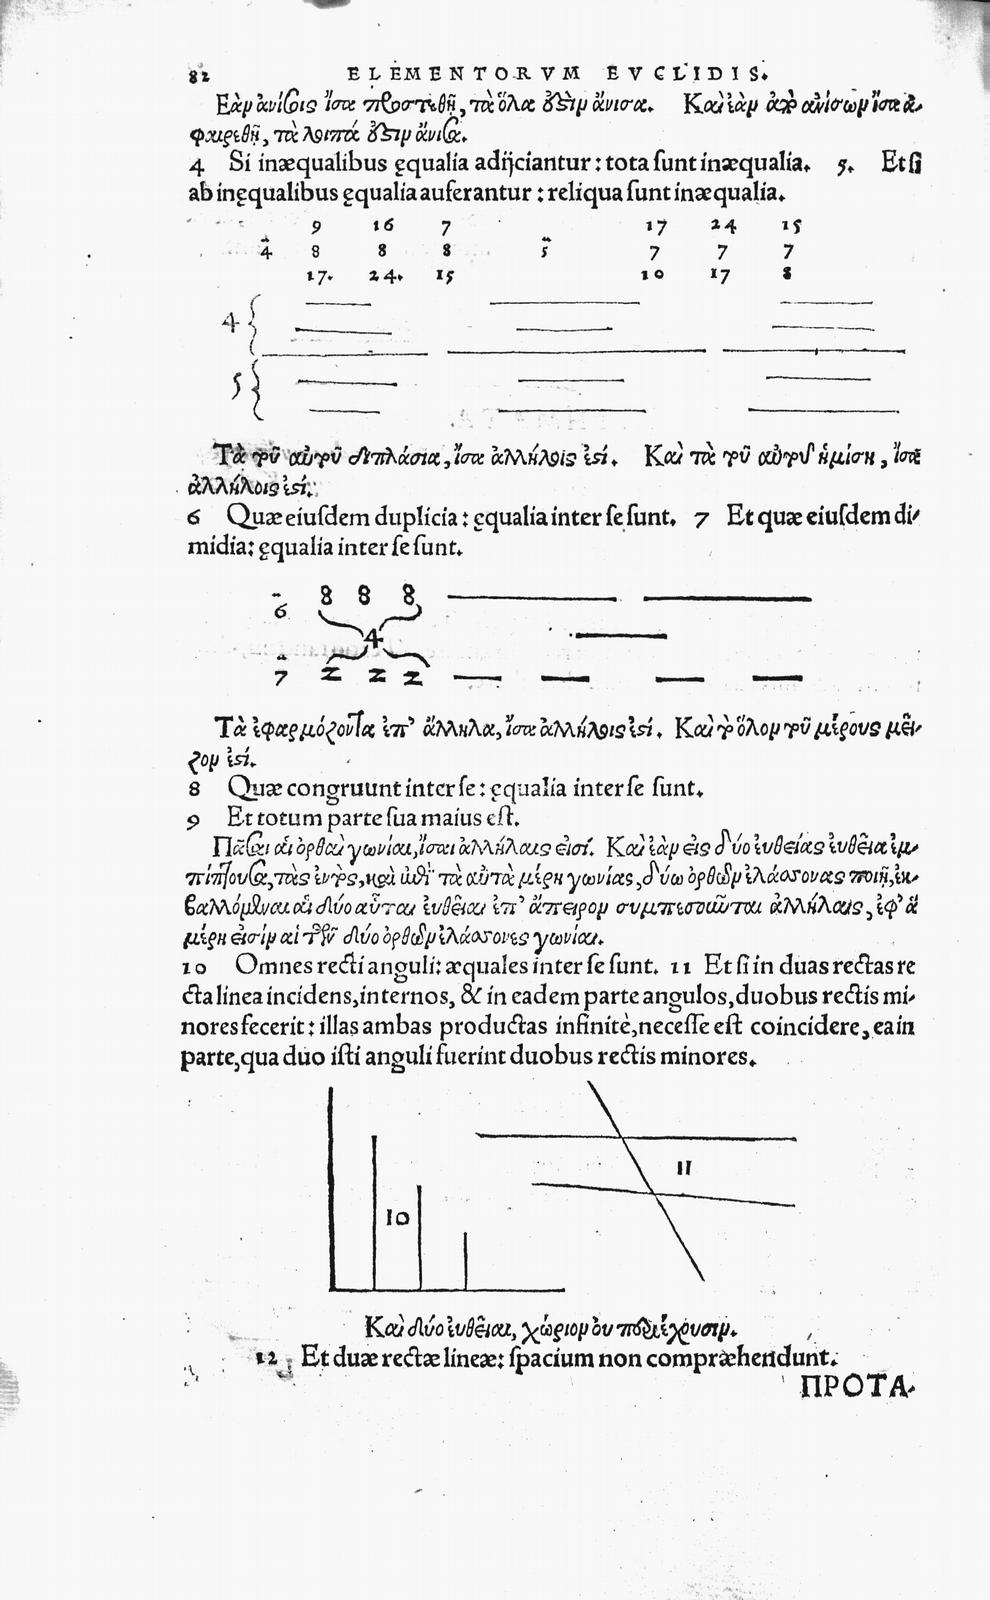 82 ELEMENTORVM EVCLIDIS.
Ἐὰν ἀνίσοις ἴσα προστεθῇ, τὰ ὅλα ἐστὶν ἄνισα. Καὶ ἐὰν ἀπὸ ἀνίσων ἴσα ἀ-
φαιρεθῇ, τὰ λοιπά ἐστιν ἄνισα.
4 Si inæqualibus ęqualia adijciantur: tota sunt inæqualia. 5. Et si
ab inęqualibus ęqualia auferantur: reliqua sunt inæqualia.
9 16 7 17 24 15
4 8 8 8 5 7 7 7
17. 24. 15 10 17 8
4
5
Τὰ τοῦ αὐτοῦ διπλάσια, ἴσα ἀλλήλοις ἐσί. Καὶ τὰ τοῦ αὐτοῦ ἡμίση, ἴσα
ἀλλήλοις ἐσί.
6 Quæ eiusdem duplicia: ęqualia inter se sunt. 7 Et quæ eiusdem di-
midia: ęqualia inter se sunt.
6 8 8 8
4
7 2 2 2
Τὰ ἐφαρμόζοντα ἐπ' ἄλληλα, ἴσα ἀλλήλοις ἐσί. Καὶ τὸ ὅλον τοῦ μέρους μεῖ-
ζον ἐσί.
8 Quæ congruunt inter se: ęqualia inter se sunt.
9 Et totum parte sua maius est.
Πᾶσαι αἱ ὀρθαὶ γωνίαι, ἴσαι ἀλλήλαις εἰσί. Καὶ ἐὰν εἰς δύο ἐυθείας ἐυθεῖα ἐμ-
πίπτουσα, τὰς ἐντὸς, καὶ ἐπὶ τὰ αὐτὰ μέρη γωνίας, δύω ὀρθῶν ἐλάσσονας ποιῇ, ἐκ-
βαλλόμεναι αἱ δύο αὗται ἐυθεῖαι ἐπ' ἄπειρον συμπεσοῦνται ἀλλήλαις, ἐφ' ἃ
μέρη εἰσὶν αἱ τῶν δύο ὀρθῶν ἐλάσσονες γωνίαι.
10 Omnes recti anguli: æquales inter se sunt. 11 Et si in duas rectas re
cta linea incidens, internos, & in eadem parte angulos, duobus rectis mi-
nores fecerit: illas ambas productas infinitè, necesse est coincidere, ea in
parte, qua duo isti anguli fuerint duobus rectis minores.
10 11
Καὶ δύο ἐυθεῖαι, χώριον ὀυ περιέχουσιν.
12 Et duæ rectæ lineæ: spacium non compræhendunt.
ΠΡΟΤΑ-